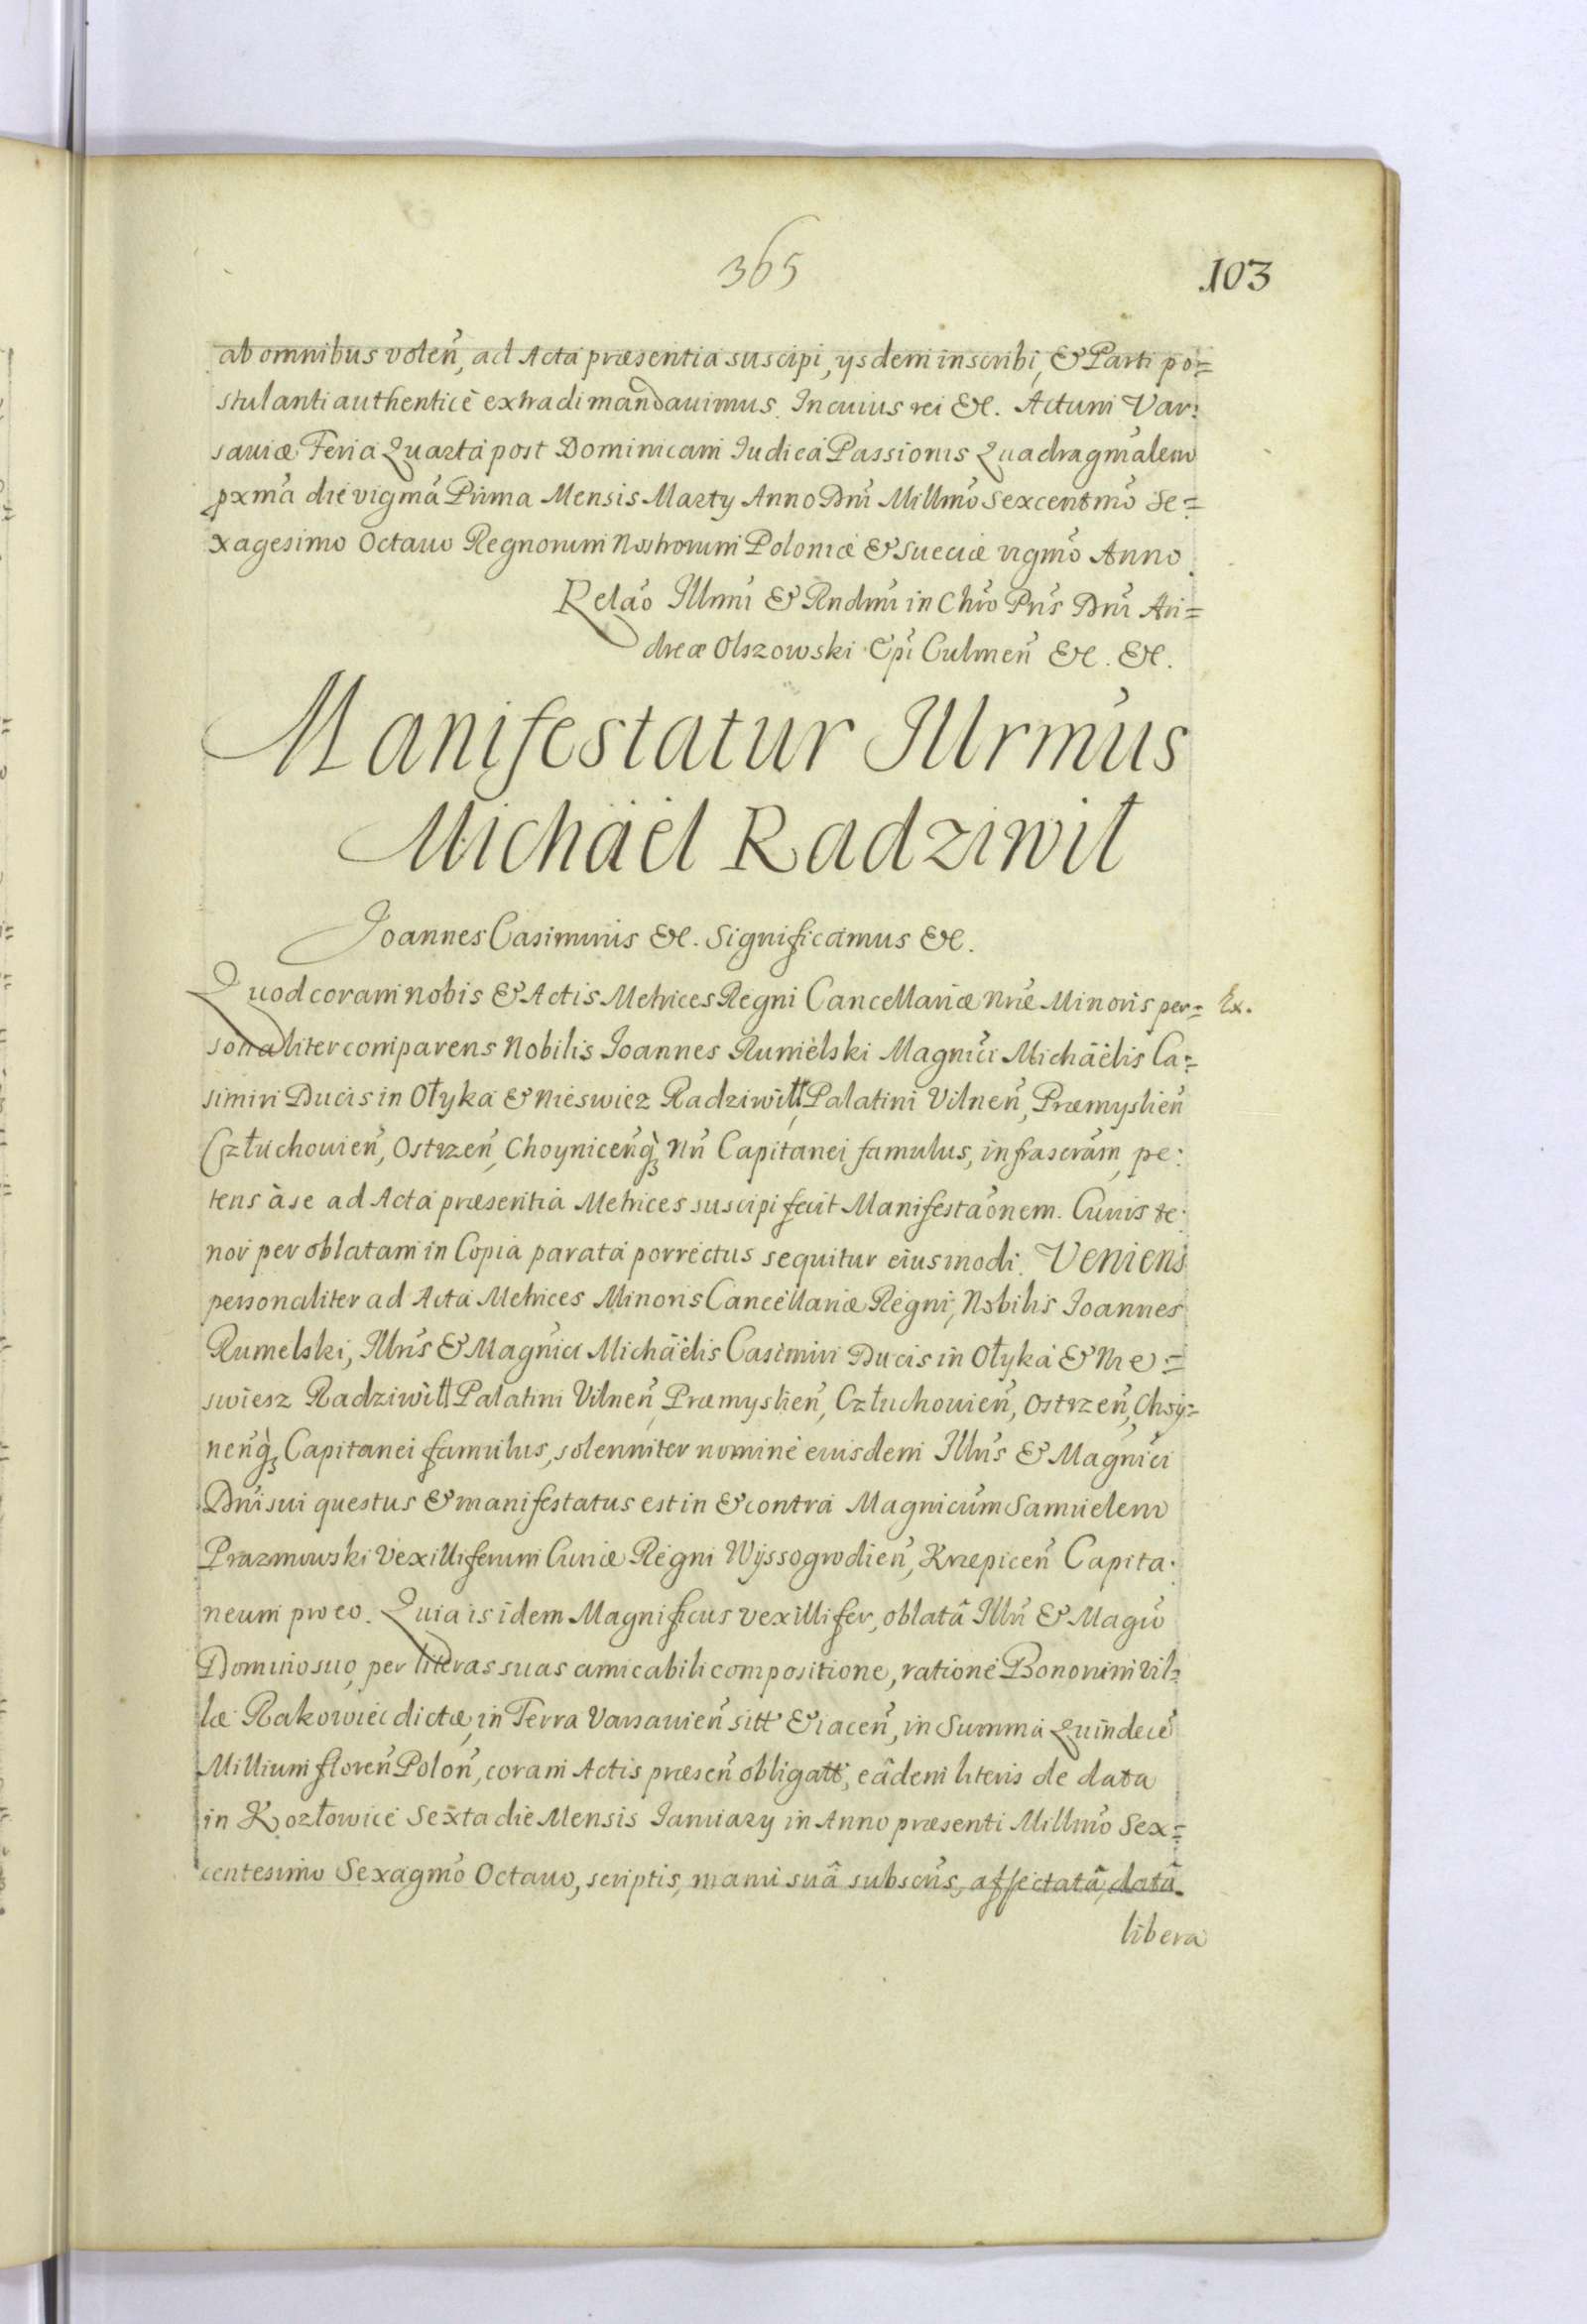 365
103
ab omnibus voleñ, ad Acta præsentia suscipi, ysdem inscribi, & Parti po=
stulanti authenticè extradi mandavimus. In cuius rei &c. Actum Var:
saviæ Feria Quarta post Dominicam Iudica Passionis Quadragmalem
pxma die vigma Prima Mensis Marty Anno Dni Millmo Sexcentmo Se=
xagesimo Octavo Regnorum Nostrorum Poloniæ & Sueciæ vigmo Anno.
Relao Illmi & Rndmi in Chro Pris Dni An=
dreæ Olszowski Epi Culmeñ &c. &c.
Manifestatur Illrmus
Michäel Radziwił
Joannes Casimirus &c. Significamus &c.
Quod coram nobis & Actis Metrices Regni Cancellariæ Nræ Minoris per=
Ex.
sonaliter comparens Nobilis Joannes Rumelski Magnici Michäelis Ca=
simiri Ducis in Ołyka & Nieswiez Radziwiłł, Palatini Vilneñ, Præmyslieñ
Człuchovieñ, Ostrzeñ, Choyniceñq, Nri Capitanei famulus, infrascram, pe:
tens à se ad Acta præsentia Metrices suscipi fecit Manifestaonem. Cuius te:
nor per oblatam in Copia parata porrectus sequitur eiusmodi. Veniens
personaliter ad Acta Metrices Minoris Cancellariæ Regni, Nobilis Joannes
Rumelski, Illris & Magnici Michäelis Casimiri Ducis in Ołyka & Nie=
swiesz Radziwiłł Palatini Vilneñ, Præmyslieñ, Człuchovieñ, Ostrzeñ, Choy=
neñq, Capitanei famulus, solenniter nomine eiusdem Illris & Magnici
Dni sui questus & manifestatus est in & contra Magnicum Samuelem
Prazmowski Vexilliferum Curiæ Regni Wyssogrodieñ, Krzepiceñ Capita:
neum pro eo. Quia is idem Magnificus vexillifer, oblatâ Illri & Magco
Domino suo, per literas suas amicabili compositione, ratione Bonorum Vil=
læ Rakowiec dictæ, in Terra Varsavieñ sitt & iaceñ, in Summa Quindecē
Millium floreñ Poloñ, coram Actis præseñ obligatt, eâdem literis de data
in Kozłowice Sexta die Mensis Ianuary in Anno præsenti Millmo Sex=
centesimo Sexagmo Octavo, scriptis, manu suâ subscris, affectatâ, datâ
libera